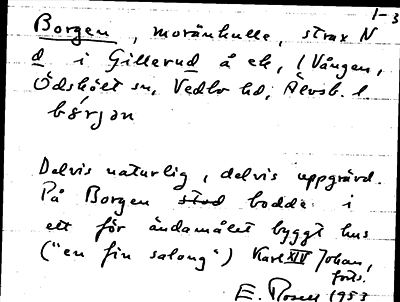 1-3
Borgen, moränkulle, strax N
d i Gillerud å ek, l Vången,
Ödskölt sn, Vedbo hd, Älvsb. l
bórjan
Delvis naturlig, delvis uppgrävd.
På Borgen stod bodde i
ett för ändamålet byggt hus
("en fin salong") Karl XIV Johan,
forts.
E. 1953